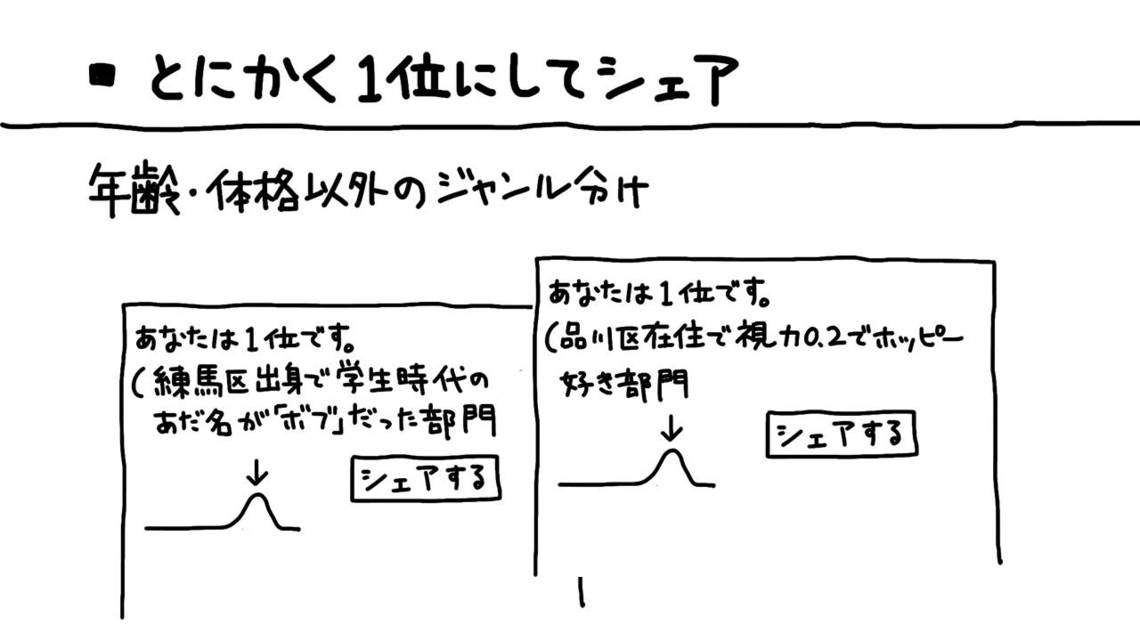 ■ とにかく1位にしてシェア
年齢・体格以外のジャンル分け
あなたは1位です。
(練馬区出身で学生時代の
あだ名が「ボブ」だった部門
シェアする
あなたは1位です。
(品川区在住で視力0.2でホッピー
好き部門
シェアする